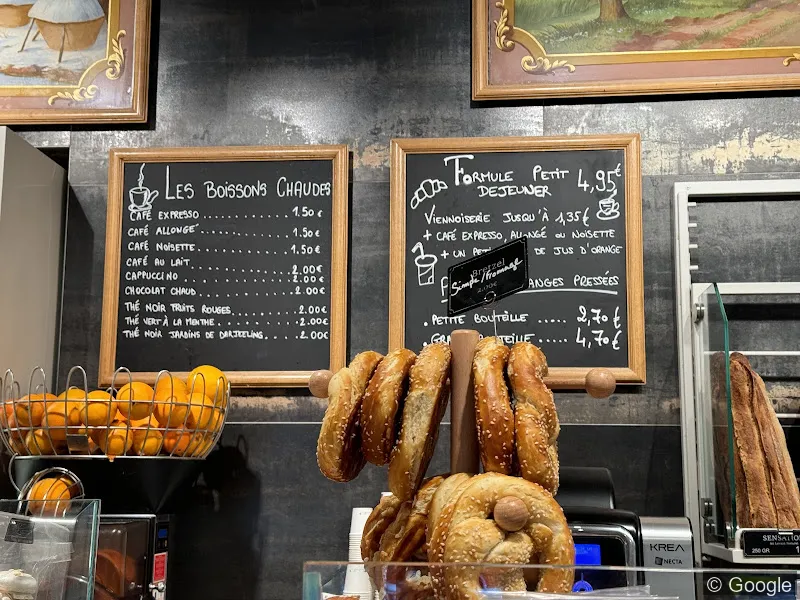 LES BOISSONS CHAUDES
CAFÉ EXPRESSO.............1.50€
CAFÉ ALLONGÉ..............1.50€
CAFÉ NOISETTE.............1.50€
CAFÉ AU LAIT..............2.00€
CAPPUCCINO................2.00€
CHOCOLAT CHAUD............2.00€
THÉ NOIR FRUITS ROUGES......2.00€
THÉ VERT À LA MENTHE......2.00€
THÉ NOIR JARDINS DE DARJEELING....2.00€
FORMULE PETIT DEJEUNER 4,95€
VIENNOISERIE JUSQU'À 1,35€
+ CAFÉ EXPRESSO, ALLONGÉ OU NOISETTE
+ UN DE JUS D'ORANGE
PRESSÉES
. PETITE BOUTEILLE ..... 2,70€
4,70€
Bretzel
Simple/fromage
KREA
NECTA
SENSATIO
250 GR
© Google